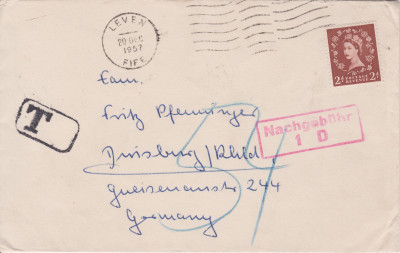 LEVEN
20 DEC
1957
FIFE
POSTAGE REVENUE
2D 2D
Fam.
Fritz Pfenninger
Duisburg/Rhld.
Gneisenaustr 244
Germany
T
Nachgebühr
1 D